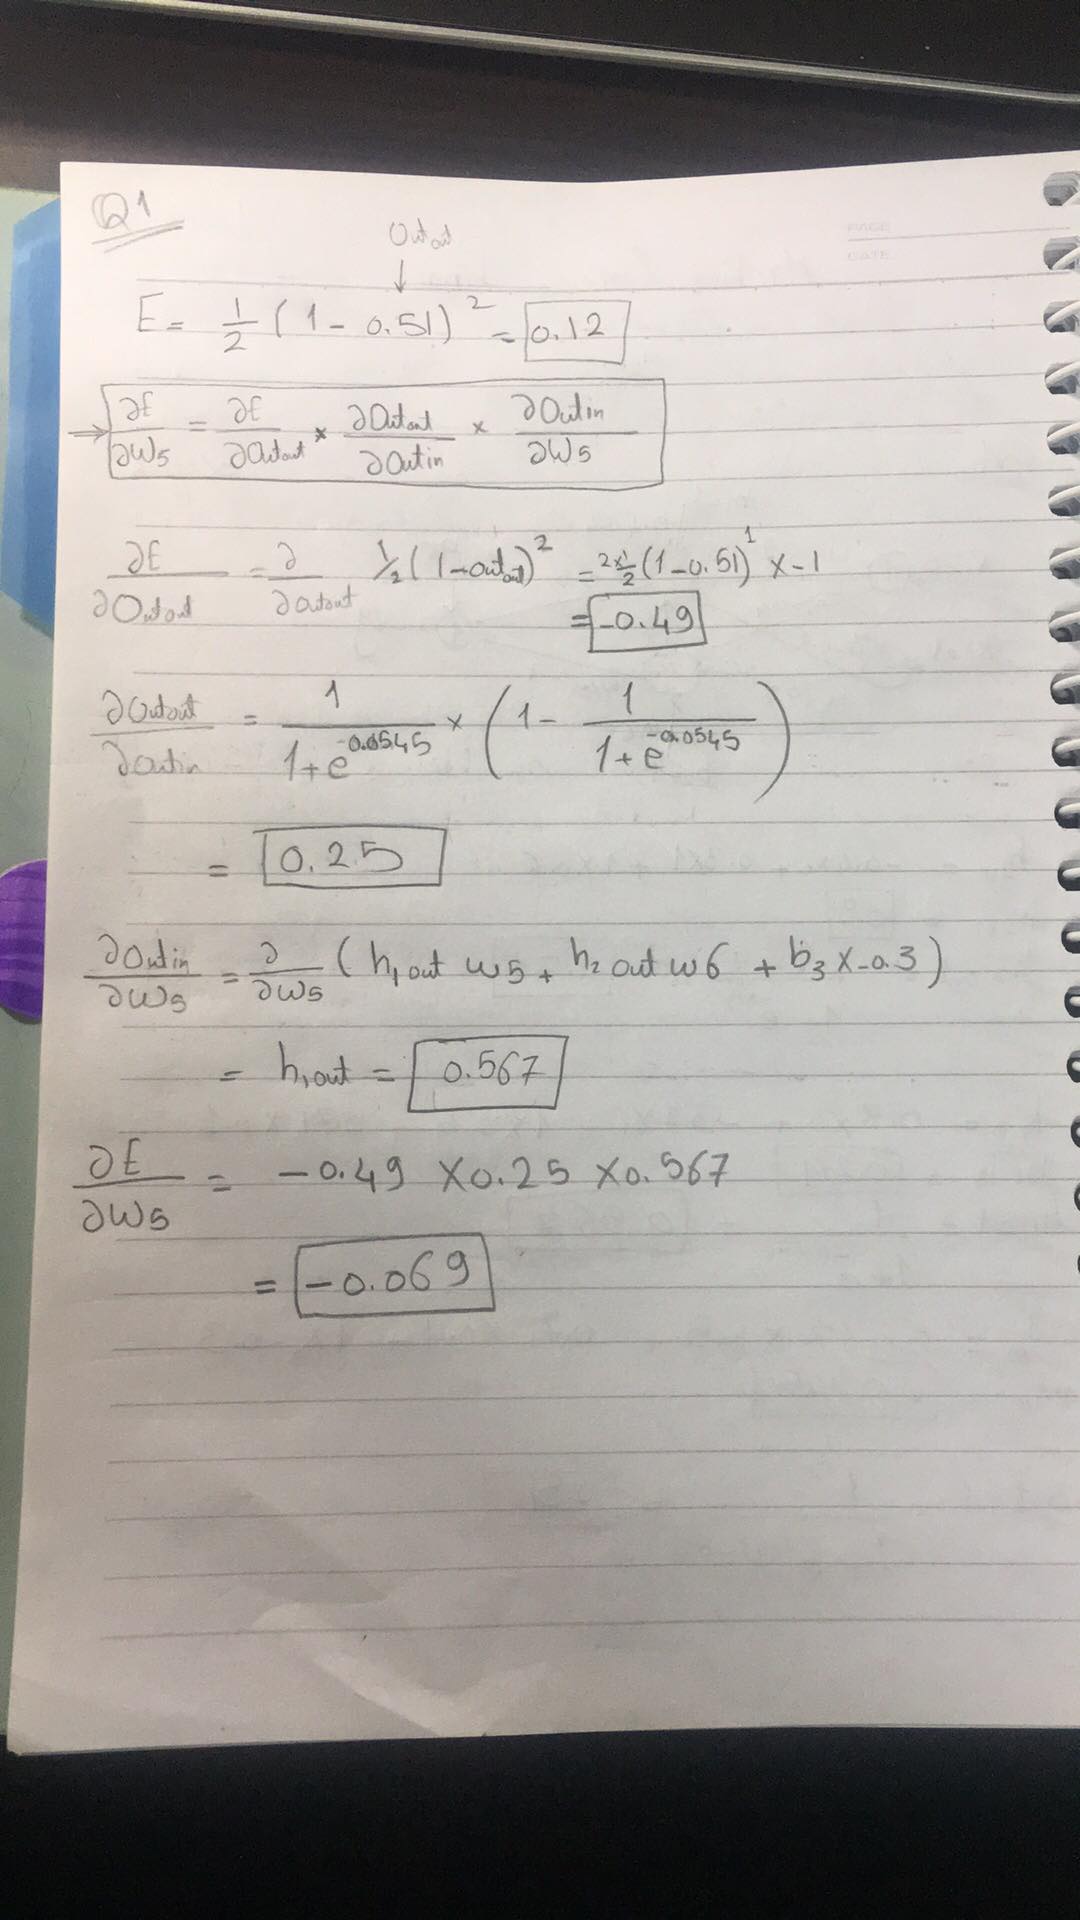 Q1
Outout
E = 1/2 (1 - 0.51)² = 0.12
→ ∂E/∂W5 = ∂E/∂Outout × ∂Outout/∂Outin × ∂Outin/∂W5
∂E/∂Outout = ∂/∂outout 1/2 (1 - outout)² = 2×1/2 (1 - 0.51)¹ × -1
= -0.49
∂Outout/∂outin = 1/(1+e^-0.0545) × (1 - 1/(1+e^-0.0545))
= 0.25
∂Outin/∂W5 = ∂/∂W5 (h₁out w5 + h₂out w6 + b₃ × -0.3)
= h₁out = 0.567
∂E/∂W5 = -0.49 × 0.25 × 0.567
= -0.069